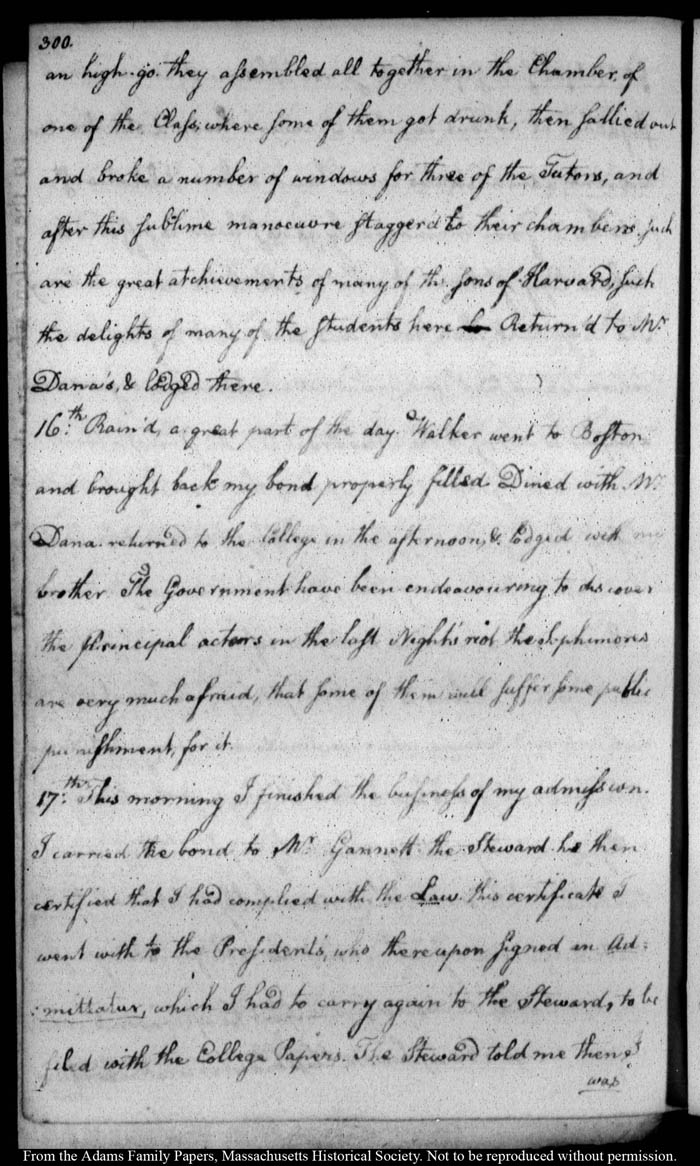 300.
an high-go. they assembled all together in the Chamber, of
one of the Class; where some of them got drunk, then sallied out
and broke a number of windows for three of the Tutors, and
after this sublime manoeuvre stagger'd to their chambers. such
are the great atchievements of many of the sons of Harvard, such
the delights of many of the students here Return'd to Mr.
Dana's, & lodged there.
16th. Rain'd, a great part of the day. Walker went to Boston
and brought back my bond properly filled. Dined with Mr.
Dana. returned to the College in the afternoon, & lodged with my
brother. The Government have been endeavouring to discover
the principal actors in the last Night's riot the Sophimores
are very much afraid, that some of them will suffer some public
punishment, for it.
17th. This morning I finished the business of my admission.
I carried the bond to Mr. Gannett the Steward. he then
certified that I had complied with the Law. this certificate I
went with to the President's, who thereupon signed an Ad:
:mittatur, which I had to carry again to the Steward, to be
filed with the College Papers. The Steward told me there
was
From the Adams Family Papers, Massachusetts Historical Society. Not to be reproduced without permission.